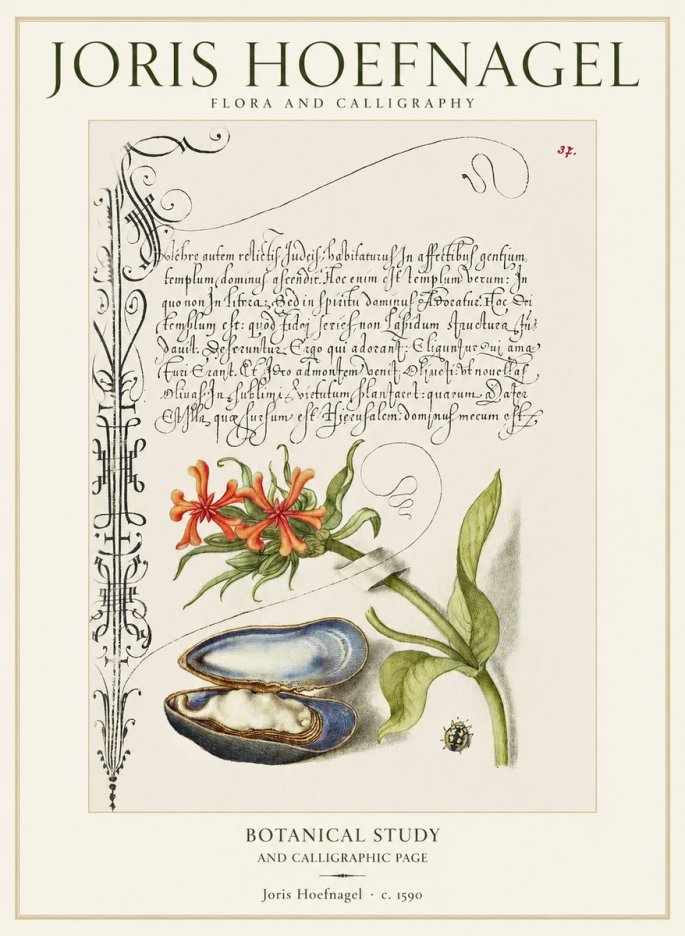 JORIS HOEFNAGEL
FLORA AND CALLIGRAPHY
37.
autem relictis Judeis, habitaturus In affectibus gentium,
templum dominus ascendit. Hoc enim est templum verum: In
quo non In litera, Sed in spiritu dominus Adoratur. Hoc Dei
templum est: quod fidei series non Lapidum structura
Deseruntur Ergo qui adorant: Eliguntur Qui ama
turi Erant. Et Ideo ad montem venit Oliueti: Vt nouellas
Oliuas In sublimi virtutum plantaret: quarum Mater
Est Illa, quæ sursum est Hierusalem: dominus mecum
BOTANICAL STUDY
AND CALLIGRAPHIC PAGE
Joris Hoefnagel · c. 1590